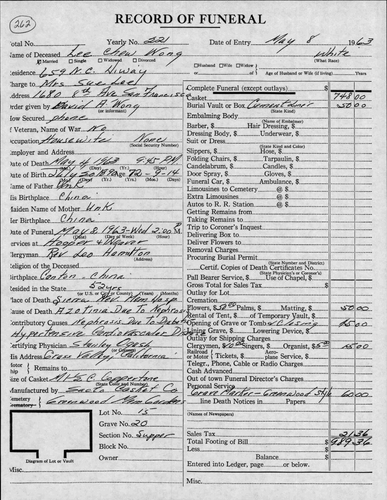 262
RECORD OF FUNERAL
Total No. Yearly No. 221 Date of Entry May 8 1963
Name of Deceased Lee Chew Wong White
Married Single Widowed Divorced Husband Wife Widow (What Race)
Residence 659 N.C. Hiway
Charge to Mrs Sue
Address 1680 8th Ave San Francisco
Order given by David A. Wong
(or informant)
How Secured phone
If Veteran, Name of War No
Occupation Housewife None
(Social Security Number)
Employer and Address
Date of Death May 4 1963 9:45 PM
Date of Birth July 20 1890 Age 72-9-14
Name of Father Unk
His Birthplace China
Maiden Name of Mother Unk
Her Birthplace China
Date of Funeral May 8 1963-Wed 2:00
Services at Hooper & Weaver
Clergyman Rev Leo
(Address)
Religion of the Deceased
Birthplace Canton-China
Resided in the State 52 yrs
Place of Death Sierra Nev Mem Hosp
Cause of Death
Contributory Causes
Hypertensive Cardiovascular
Certifying Physician Stanley
His Address Grass Valley, California
Size of Casket
Manufactured by
Cemetery Greenwood
Lot No. 15
Grave No. 20
Section No.
Block No.
Owner
Diagram of Lot or Vault
Misc.
Age of Husband or Wife (if living)
Complete Funeral (except outlays) $
Casket 748.00
(State Kind)
Burial Vault or Box Cement 50.00
Embalming Body
(Name of Embalmer)
Barber, $ Hair Dressing, $
Dressing Body, $ Underwear, $
Suit or Dress
(State Kind and Color)
Slippers, $ Hose, $
Folding Chairs, $ Tarpaulin, $
Candelabrum, $ Candles, $
Door Spray, $ Gloves, $
Funeral Car, $ Ambulance, $
Limousines to Cemetery @ $
Extra Limousines @ $
Autos to R. R. Station @ $
Getting Remains
Taking Remains to
Trip to Coroner's Inquest
Delivering Box to
Deliver Flowers to
Removal Charges
Procuring Burial Permit
(State Number and District)
Certif. Copies of Death Certificate No.
(State Physician's or Coroner's)
Pall Bearer Service, $ Use of Chapel, $
Gross Total for Sales Tax $
Outlay for Lot
Cremation
Flowers, $ Palms, $ Matting, $ 50.00
Rental of Tent, $ of Temporary Vault, $
Opening of Grave or Tomb
Lining Grave, $ Lowering Device, $
Outlay for Shipping Charges
Clergyman, $ Singers, $ Organist, $
Railroad or Motor Tickets, $ Aeroplane Service, $
Telegr., Phone Cable or Radio Charges
Cash Advanced
Out of town Funeral Director's Charges
Personal Service
Grave Marker-Greenwood 60.00
line Death Notices in Papers
(Names of Newspapers)
Sales Tax 21.36
Total Footing of Bill $ 989.36
Less
Balance $
Entered into Ledger, page or below.
Misc.